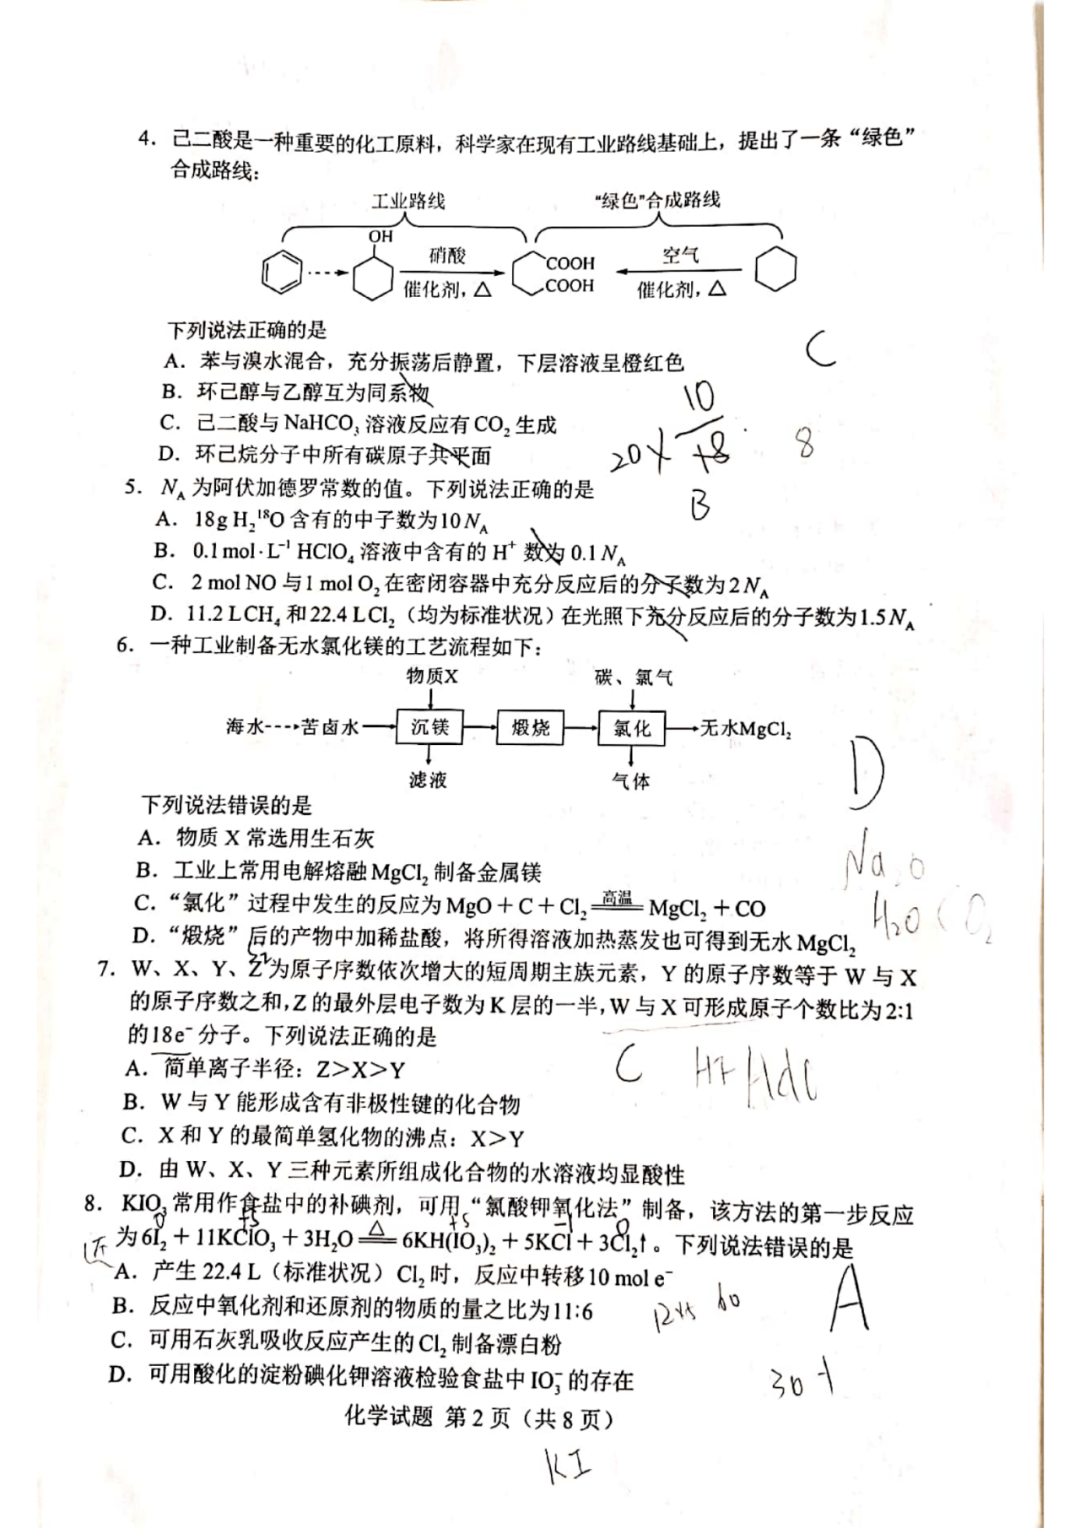 4．己二酸是一种重要的化工原料，科学家在现有工业路线基础上，提出了一条“绿色”
合成路线：
工业路线 “绿色”合成路线
OH
硝酸 COOH 空气
催化剂，△ COOH 催化剂，△
下列说法正确的是
C
A．苯与溴水混合，充分振荡后静置，下层溶液呈橙红色
B．环己醇与乙醇互为同系物
10
C．己二酸与 NaHCO₃ 溶液反应有 CO₂ 生成
D．环己烷分子中所有碳原子共平面
20× 18 8
5．N_A 为阿伏加德罗常数的值。下列说法正确的是
B
A．18g H₂¹⁸O 含有的中子数为10N_A
B．0.1mol·L⁻¹ HClO₄ 溶液中含有的 H⁺ 数为 0.1N_A
C．2 mol NO 与1 mol O₂ 在密闭容器中充分反应后的分子数为2N_A
D．11.2 L CH₄ 和 22.4 L Cl₂（均为标准状况）在光照下充分反应后的分子数为1.5N_A
6．一种工业制备无水氯化镁的工艺流程如下：
物质X 碳、氯气
海水 苦卤水 沉镁 煅烧 氯化 无水MgCl₂
滤液 气体
D
下列说法错误的是
A．物质 X 常选用生石灰
B．工业上常用电解熔融 MgCl₂ 制备金属镁
Na₂O
C．“氯化”过程中发生的反应为 MgO＋C＋Cl₂ ══高温══ MgCl₂＋CO
H₂O CO₂
D．“煅烧”后的产物中加稀盐酸，将所得溶液加热蒸发也可得到无水 MgCl₂
7．W、X、Y、Z 为原子序数依次增大的短周期主族元素，Y 的原子序数等于 W 与 X
的原子序数之和，Z 的最外层电子数为 K 层的一半，W 与 X 可形成原子个数比为 2:1
的18e⁻ 分子。下列说法正确的是
C
A．简单离子半径：Z>X>Y
B．W 与 Y 能形成含有非极性键的化合物
C．X 和 Y 的最简单氢化物的沸点：X>Y
D．由 W、X、Y 三种元素所组成化合物的水溶液均显酸性
8．KIO₃ 常用作食盐中的补碘剂，可用“氯酸钾氧化法”制备，该方法的第一步反应
0 +5 +5 -1 0
为 6I₂＋11KClO₃＋3H₂O ══△══ 6KH(IO₃)₂＋5KCl＋3Cl₂↑。下列说法错误的是
A．产生 22.4 L（标准状况）Cl₂ 时，反应中转移10 mol e⁻
A
B．反应中氧化剂和还原剂的物质的量之比为11:6
12×5 60
C．可用石灰乳吸收反应产生的 Cl₂ 制备漂白粉
D．可用酸化的淀粉碘化钾溶液检验食盐中 IO₃⁻ 的存在
化学试题 第 2 页（共 8 页）
KI